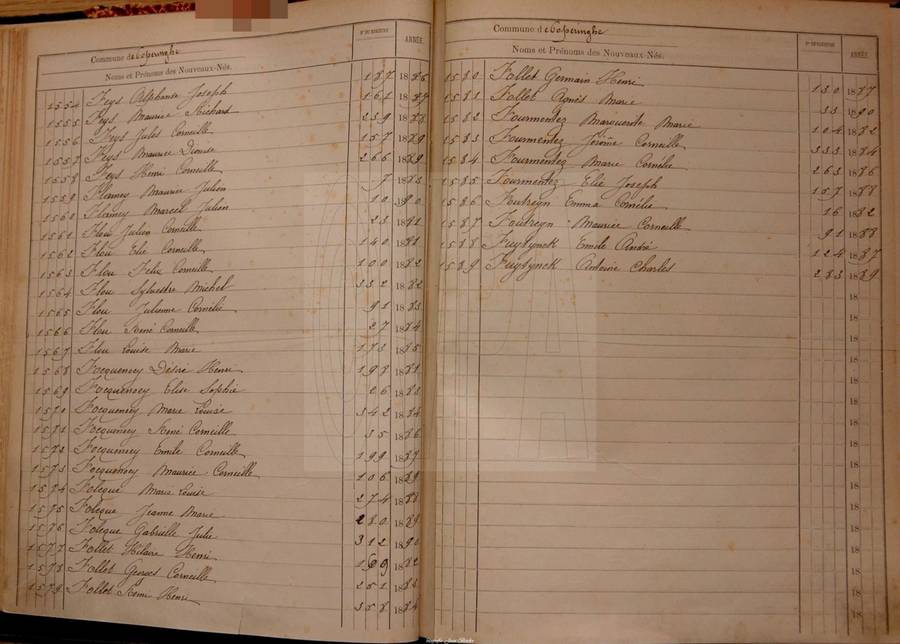 Commune de Poperinghe
Noms et Prénoms des Nouveaux-Nés.
N° DU REGISTRE
ANNÉE
1554 Feys Alphonse Joseph 187 1886
1555 Feys Maurice Richard 161
1556 Feys Jules Corneille 239 1888
1557 Feys Maurice 157 1889
1558 Feys Henri Corneille 266 1889
1559 Flamey Maurice Julien 7
1560 Flamey Marcel Julien 10 1890
1561 Flou Julien Corneille 23 1881
1562 Flou Elie Corneille 140 1881
1563 Flou Félix Corneille 100 1882
1564 Flou Sylvestre Michel 332 1882
1565 Flou Julienne Cornélie 91 1883
1566 Flou René Corneille 27 1884
1567 Flou Louise Marie 173 1885
1568 Focquenoey Désiré Henri 198 1881
1569 Focquenoey Elise Sophie 26 1883
1570 Focquenoey Marie Louise 342 1884
1571 Focquenoey René Corneille 35 1886
1572 Focquenoey Emile Corneille 199 1887
1573 Focquenoey Maurice Corneille 106 1889
1574 Folcque Marie Louise 274 1888
1575 Folcque Jeanne Marie 280 1889
1576 Folcque Gabrielle Julie 312 1890
1577 Follet Hilaire Henri 109 1882
1578 Follet Georges Corneille 251 1883
1579 Follet Remi Henri 358 1884
Commune de Poperinghe
Noms et Prénoms des Nouveaux-Nés.
N° DU REGISTRE
ANNÉE
1580 Follet Germain Henri 130 1887
1581 Follet Agnès Marie 33 1890
1582 Fourmentez Marguerite Marie 104 1882
1583 Fourmentez Jérôme Corneille 333 1884
1584 Fourmentez Marie Cornélie 263 1886
1585 Fourmentez Elie Joseph 157 1888
1586 Foutreyn Emma Cornélie 16 1882
1587 Foutreyn Maurice Corneille 91 1888
1588 Fuytynck Emile André 124 1887
1589 Fuytynck Antoine Charles 283 1889
18
18
18
18
18
18
18
18
18
18
18
18
18
18
18
18